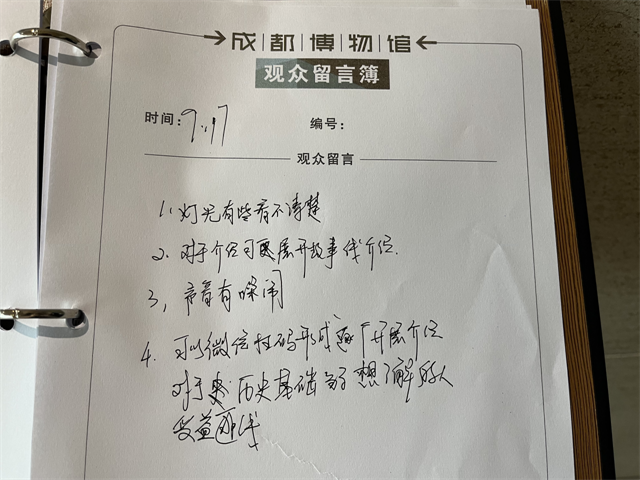 成都博物馆
观众留言簿
时间: 9.17
编号:
观众留言
1. 灯光有些看不清楚
2. 对于介绍可更展开故事线介绍.
3, 声音有噪闹
4. 可以微信扫码形式逐个开展介绍
对于 历史基础 想了解的人
受益